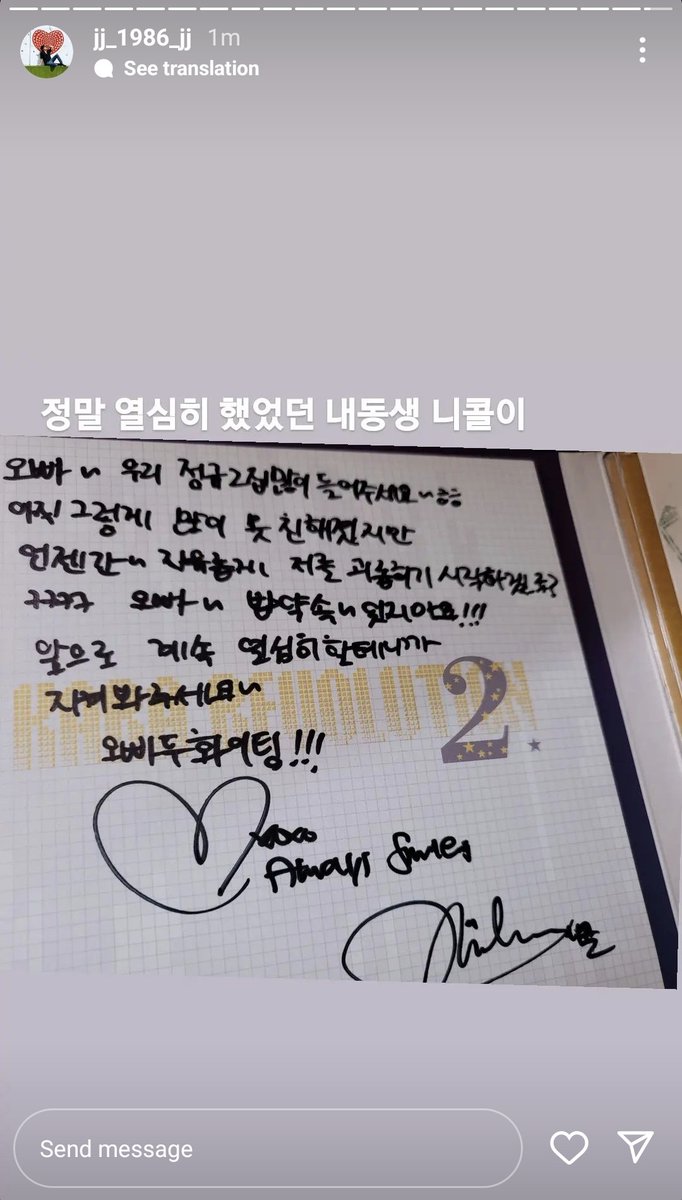 jj_1986_jj 1m
See translation
정말 열심히 했었던 내동생 니콜이
오빠~ 우리 정규2집많이 들어주세요~ㅎㅎ
아직 그렇게 많이 못 친해졌지만
언젠간~ 자유롭게 저를 괴롭히기 시작하겠죠?
ㅋㅋㅋㅋ 오빠~ 밥약속~ 잊지마요!!!
앞으로 계속 열심히할테니까
지켜봐주세요~
오빠두 화이팅!!!
KARA REVOLUTION
2
xoxo
Always Smiles
Send message